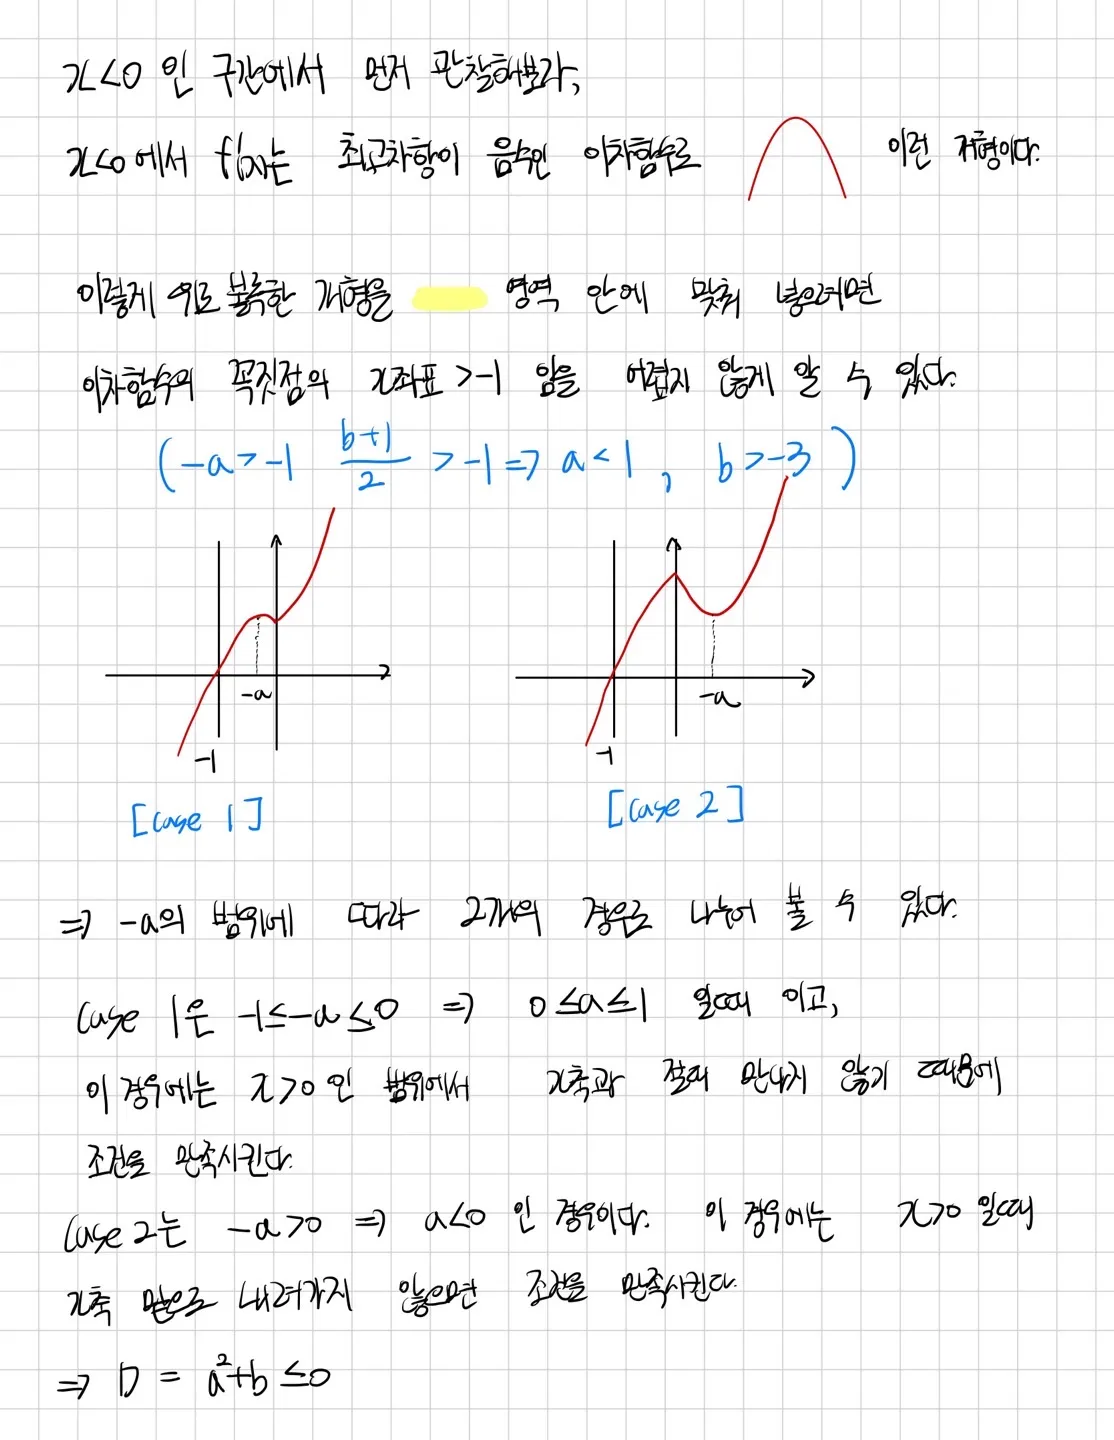 x<0 인 구간에서 먼저 관찰해보자,
x<0 에서 f'(x)는 최고차항이 음수인 이차함수로 이런 개형이다.
이렇게 위로 볼록한 개형을 영역 안에 맞춰 넣으려면
이차함수의 꼭짓점의 x좌표 >-1 임을 어렵지 않게 알 수 있다.
(-a>-1 (b+1)/2 >-1 ⇒ a<1, b>-3)
-a
-a
-1
-1
[Case 1]
[Case 2]
⇒ -a의 범위에 따라 2개의 경우로 나누어 볼 수 있다.
Case 1은 -1≤-a≤0 ⇒ 0≤a≤1 일때 이고,
이 경우에는 x>0 인 범위에서 x축과 절대 만나지 않기 때문에
조건을 만족시킨다.
Case 2는 -a>0 ⇒ a<0 인 경우이다. 이 경우에는 x>0 일때
x축 밑으로 내려가지 않으면 조건을 만족시킨다.
⇒ D = a²+b ≤0